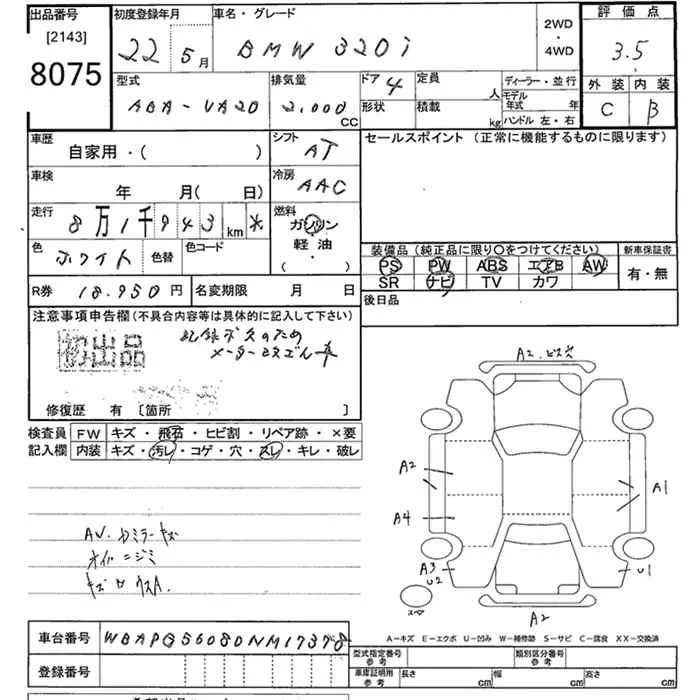 出品番号
[2143]
8075
初度登録年月
22 5月
車名・グレード
BMW 320i
2WD
・
4WD
評価点
3.5
外装 内装
C B
型式
ABA-VA20
排気量
2,000 CC
ドア 4
形状
定員 人
積載 kg
ディーラー・並行
モデル年式 年
ハンドル 左・右
車歴
自家用・( )
シフト
AT
セールスポイント (正常に機能するものに限ります)
車検
年 月( 日)
冷房
AAC
走行
8万1千943km *
燃料
ガソリン
軽油
( )
色
ホワイト
色替
色コード
装備品(純正品に限り○をつけてください)
PS PW ABS エアB AW
SR ナビ TV カワ
新車保証書
有・無
R券 18.950円
名変期限 月 日
後日品
注意事項申告欄(不具合内容等は具体的に記入して下さい)
初出品
記録ボスのため
修復歴 有 [箇所 ]
検査員 FW キズ・飛石・ヒビ割・リペア跡・×要
記入欄 内装 キズ・汚レ・コゲ・穴・スレ・キレ・破レ
A2.ビス穴
A2
A1
A4
A3
U2
U1
スペア
A2
オイルニジミ
A-キズ E-エクボ U-凹み W-補修跡 S-サビ C-腐食 XX-交換済
車台番号 WBAPG56080NM17378
登録番号
型式指定番号
参考
類別区分番号
参考
車庫証明用
参考
長さ cm
幅 cm
高さ cm